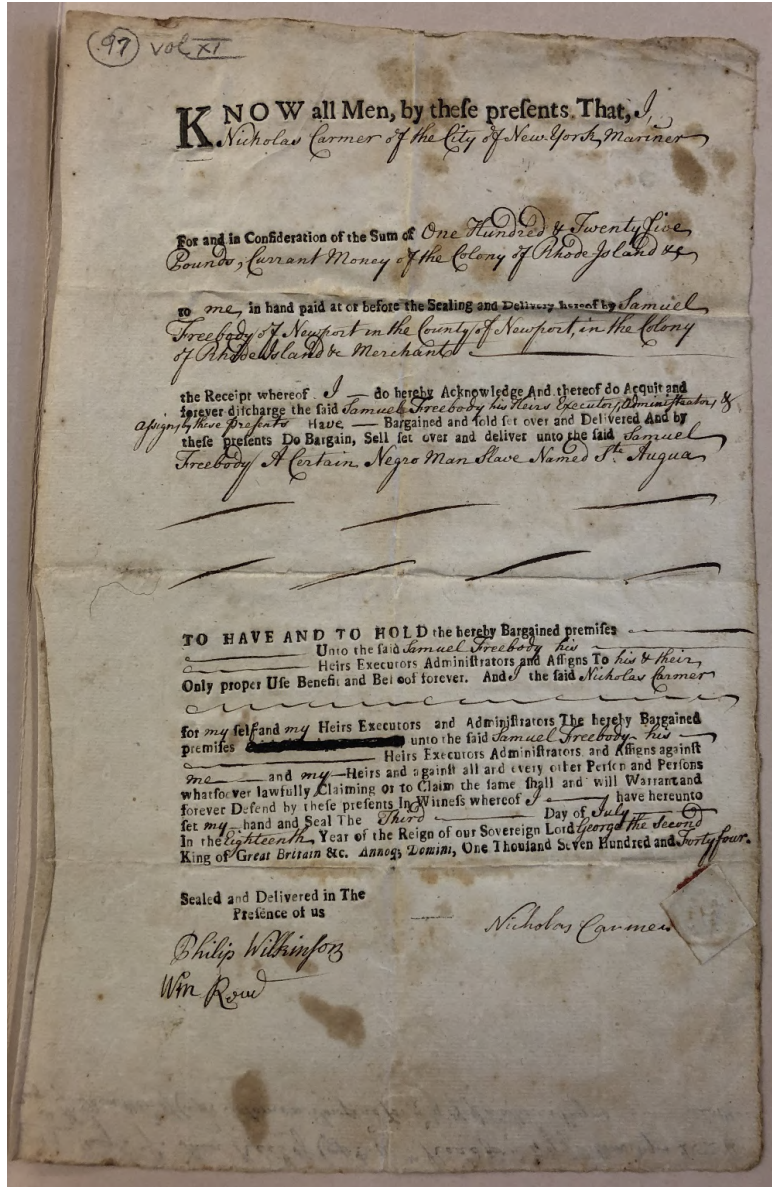 97 Vol XI
KNOW all Men, by these presents. That, I,
Nicholas Carmer of the City of New York, Mariner
For and in Consideration of the Sum of One Hundred & Twenty five
Pounds, Currant Money of the Colony of Rhode Island &c
to me, in hand paid at or before the Sealing and Delivery hereof by Samuel
Freebody of Newport in the County of Newport, in the Colony
of Rhode Island &c Merchant
the Receipt whereof I do hereby Acknowledge And thereof do Acquit and
forever discharge the said Samuel Freebody his Heirs Executors, Administrators, &
assigns, by these presents Have Bargained and sold set over and Delivered And by
these presents Do Bargain, Sell set over and deliver unto the said Samuel
Freebody A Certain Negro Man Slave Named St. Augua
TO HAVE AND TO HOLD the hereby Bargained premises
Unto the said Samuel Freebody his
Heirs Executors Administrators and Assigns To his & their
Only proper Use Benefit and Behoof forever. And I the said Nicholas Carmer
for my self and my Heirs Executors and Administrators The hereby Bargained
premises unto the said Samuel Freebody his
Heirs Executors Administrators and Assigns against
me and my Heirs and against all and every other Person and Persons
whatsoever lawfully Claiming or to Claim the same shall and will Warrant and
forever Defend by these presents In Witness whereof I have hereunto
set my hand and Seal The Third Day of July
In the Eighteenth Year of the Reign of our Sovereign Lord George the Second
King of Great Britain &c. Annoq; Domini, One Thousand Seven Hundred and Forty four.
Sealed and Delivered in The
Presence of us
Nicholas Carmer
Philip Wilkinson
Wm